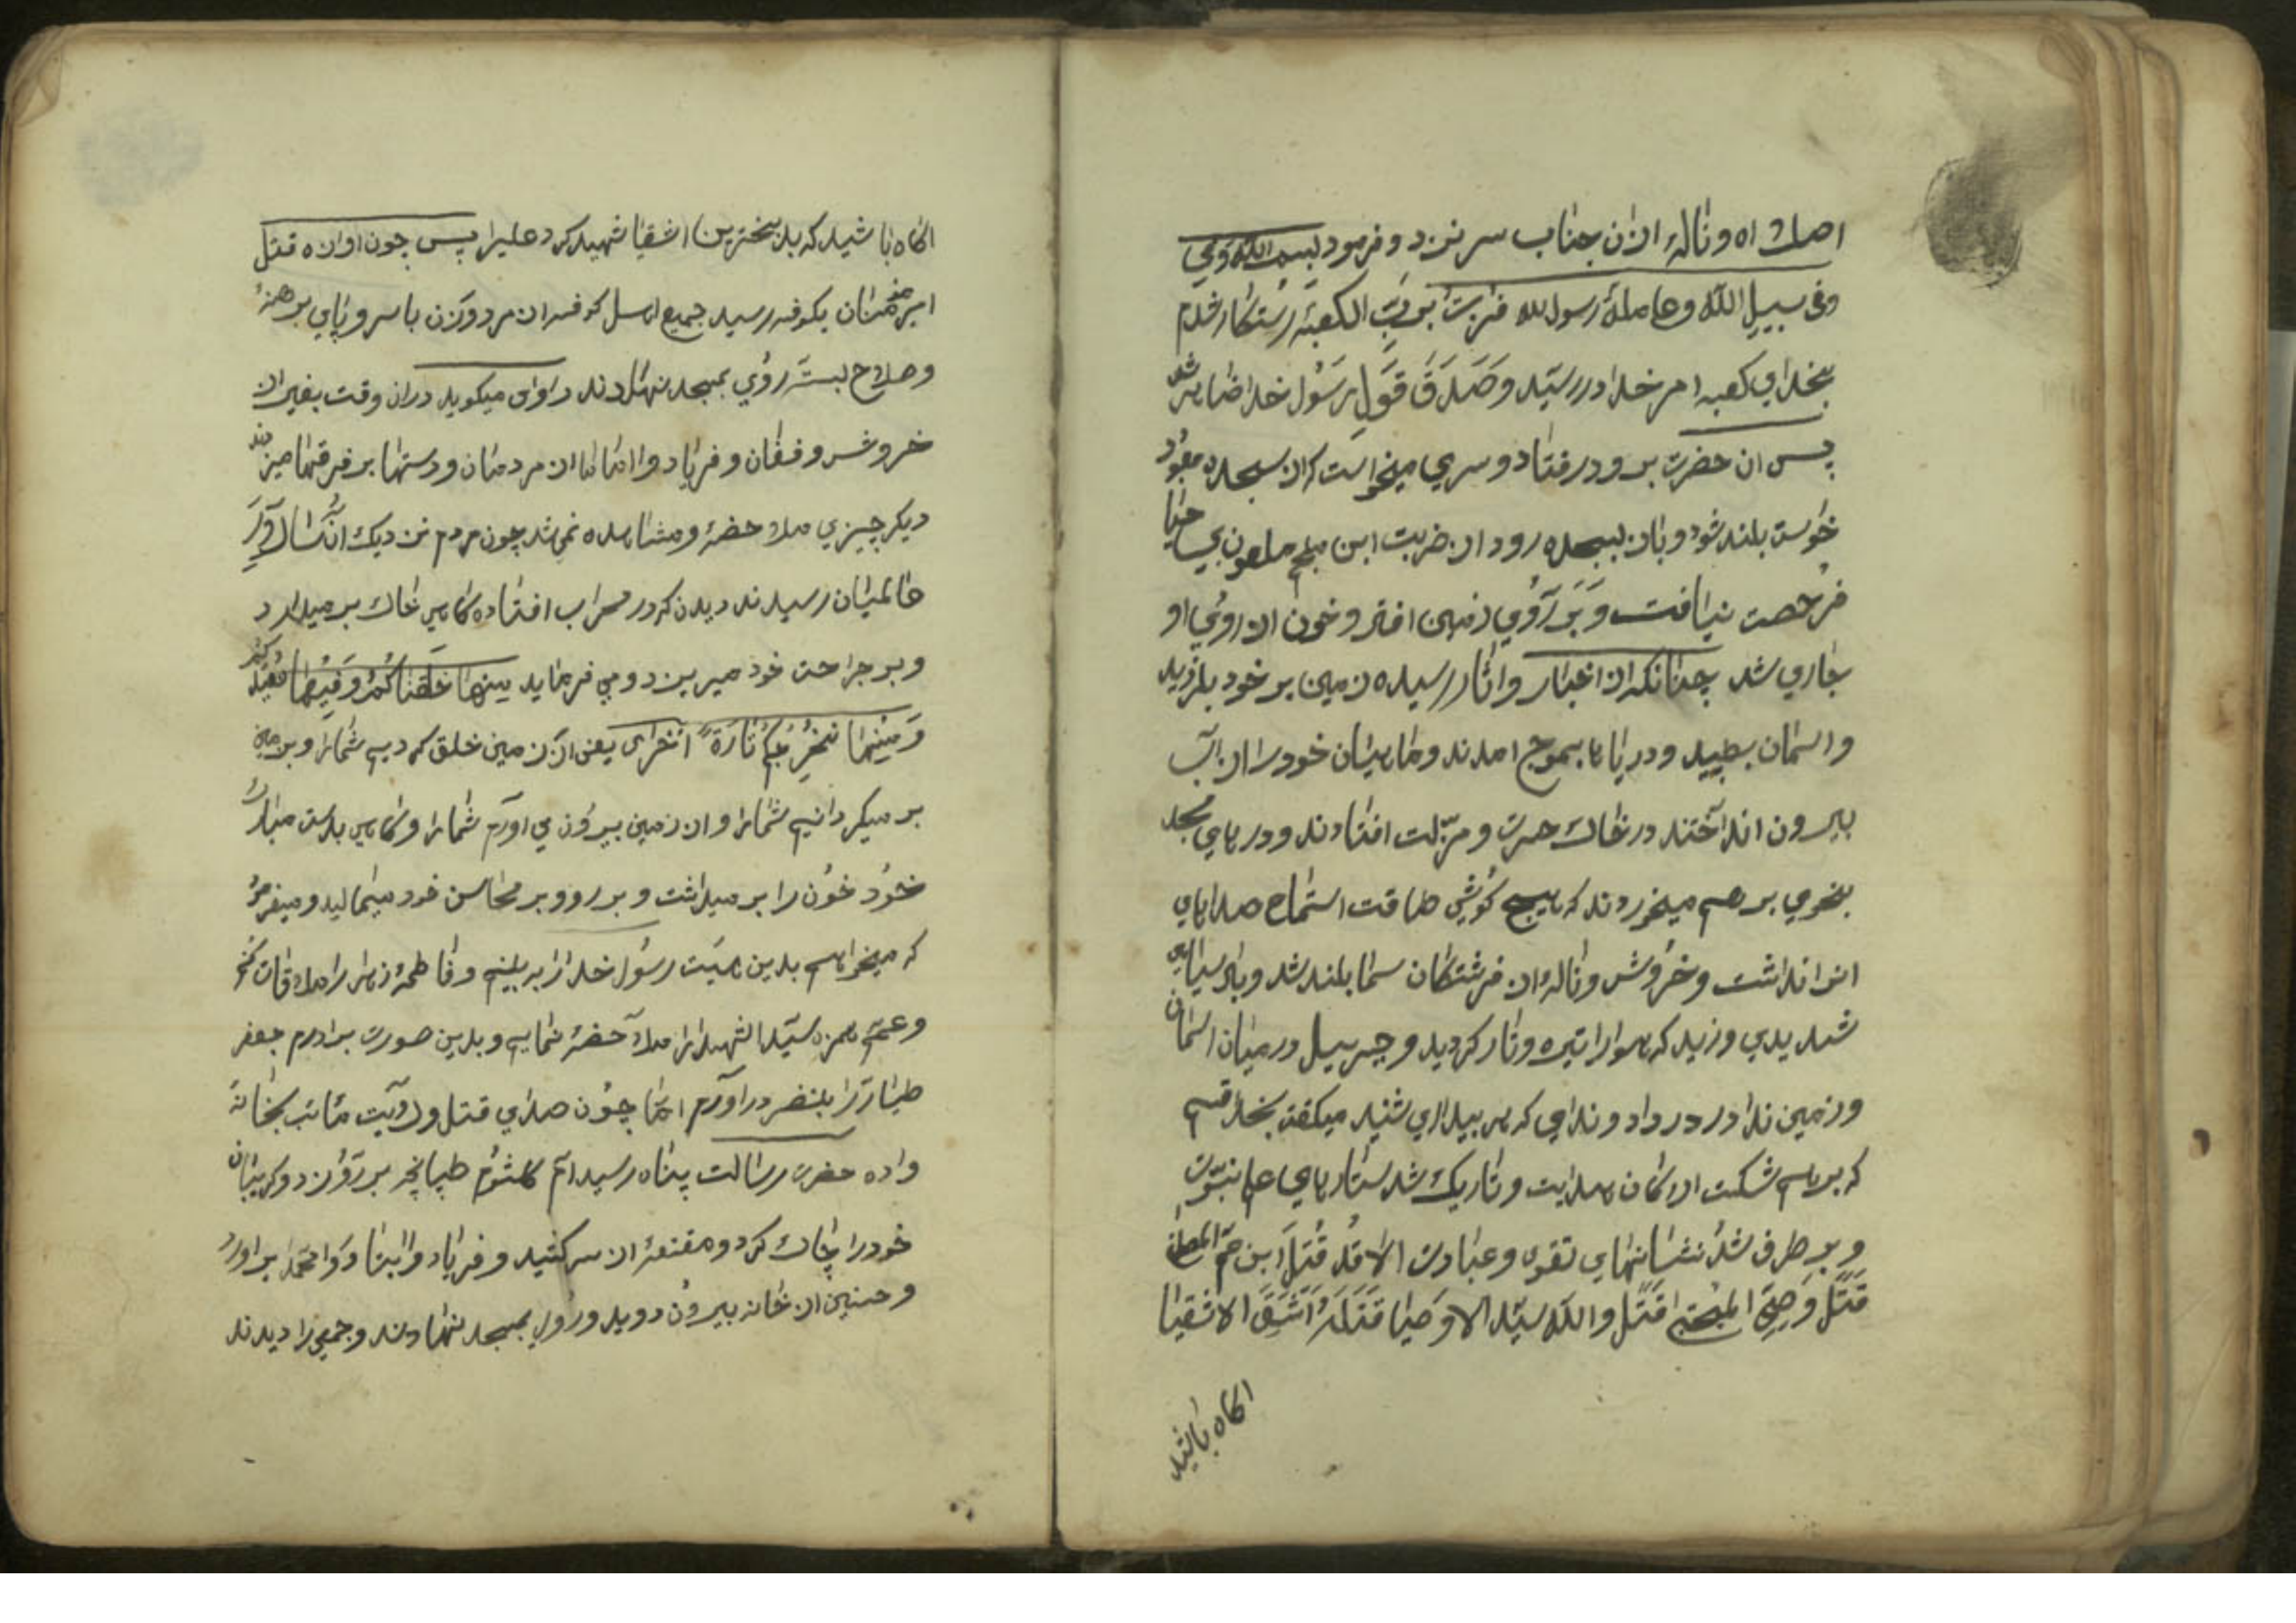 اصلا اه و ناله ازان جناب سر نزد و فرمود بسم الله و بالله
و فی سبیل الله و علی ملة رسول الله فزت برب الکعبه رستکار شدم
بخدای کعبه امر خدا در رسید و صدق قول رسول خدا ظاهر شد
پس ان حضرت برو در فتاد و سری میخواست که از سجده معبود
خواست بلند شود و باز بسجده رود از ضربت ابن ملجم ملعون بی حیا
فرصت نیافت و بر روی زمین افتاد و خون از روی او
جاری شد چنانکه از اخبار و اثار رسیده زمین بر خود بلرزید
و اسمان بطپید و دریاها بموج امدند و ماهیان خود را از آب
بیرون انداختند در خاک حسرت و مزلت افتادند و درهای مسجد
بنحوی بر هم میخوردند که هیچ گوشی طاقت استماع صداهای
انرا نداشت و خروش و ناله از فرشتکان سما بلند شد و باد سیاهی
شدیدی وزید که هوا را تیره و تار کردید و جبرییل در میان اسمان
و زمین ندا در داد و ندای که هر بیداری شنید میکفت بخدا قسم
که بر هم شکست ارکان هدایت و تاریک شد ستارهای علم نبوت
و بر طرف شد نشانهای تقوی و عبادت الا قد قتل ابن عم المصطفی
قتل وصی المجتبی قتل والله سید الاوصیا قتله اشقی الاشقیا
اکاه باشید
اکاه باشید که بدبخترین اشقیا شهید کرد علیرا پس چون اوازه قتل
امیر مؤمنان بکوفه رسید جمیع اهل کوفه از مرد و زن با سر و پای برهنه
و صلاح بسته روی بمسجد نهادند راوی میکوید در ان وقت بغیر از
خروش و فغان و فریاد و اماما از مردمان و دستها بر فرقها میزدند
دیکر چیزی ملاحضه و مشاهده نمی شد چون مردم نزدیک انسرور
عالمیان رسیدند دیدند که در محراب افتاده کاهی خاک بر میدارد
و بر جراحت خود میریزد و می فرماید منها خلقناکم و فیها نعیدکم
و منها نخرجکم تارة اخری یعنی از زمین خلق کردیم شما را و بزمین
بر میکردانیم شما را و از زمین بیرون می آوریم شما را و کاهی بدست مبارک
خود خون را بر میداشت و بر رو و بر محاسن خود میمالید و میفرمود
که میخواهم بدین هیئت رسول خدا را به بینم و فاطمه زهرا را ملاقات کنم
و عمم حمزه سید الشهدا را ملاحضه نمایم و بدین صورت برادرم جعفر
طیار را بنضر دراورم اما چون صدای قتل ولایت مئاب بخانه
واده حضرت رسالت پناه رسید ام کلثوم طپانچه بر رو زد و کریبان
خود را چاک کرد و مقنعه از سر کشید و فریاد وا ابتا و وا محمدا براورد
و حسنین از خانه بیرون دوید و روی بمسجد نهادند و جمعی را دیدند